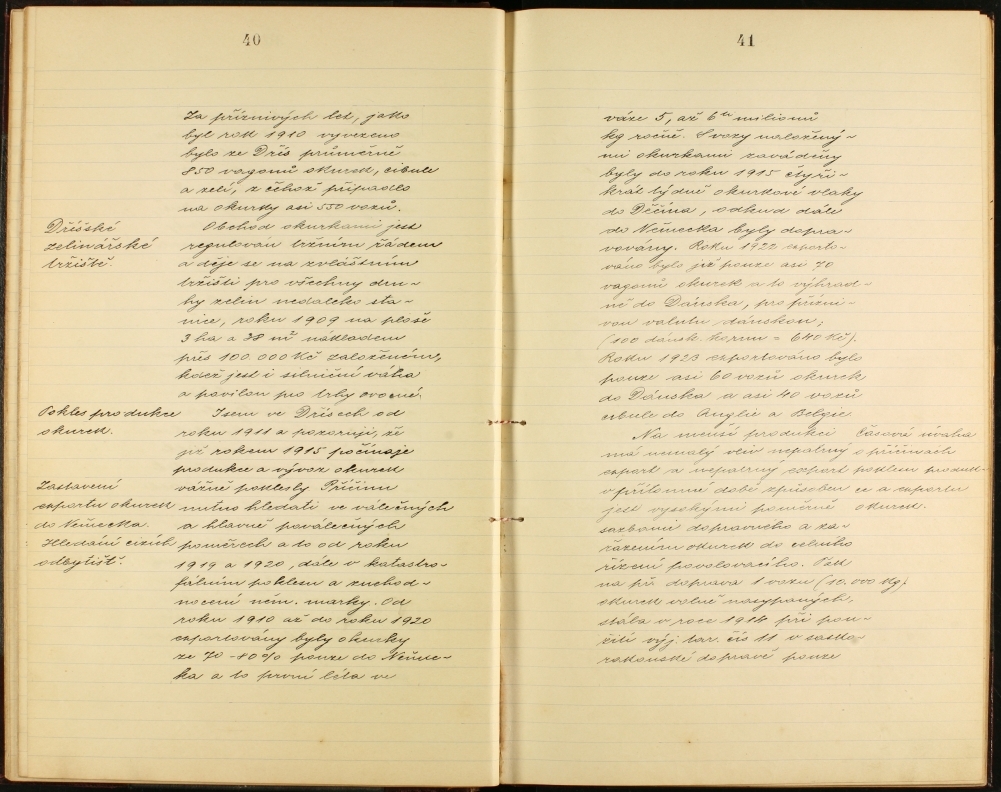 40
Za příznivých let, jako
byl rok 1910 vyvezeno
bylo ze Dřís průměrně
850 vagonů okurek, cibule
a zelí, z čehož připadlo
na okurky asi 550 vozů.
Dřísské
zelinářské
tržiště.
Obchod okurkami jest
regulován tržním řádem
a děje se na zvláštním
tržišti pro všechny dru-
hy zelin nedaleko sta-
nice, roku 1909 na ploše
3 ha a 38 m² nákladem
přes 100.000 Kč založeném,
kdež jest i silniční váha
a pavilon pro trhy ovocné.
Pokles produkce
okurek.
Jsem ve Dřísech od
roku 1911 a pozoruji, že
již rokem 1915 počínaje
produkce a vývoz okurek
Zastavení
exportu okurek
do Německa.
Hledání cizích
odbytišť.
vážně poklesly Příčinu
nutno hledati ve válečných
a hlavně poválečných
poměrech a to od roku
1919 a 1920, dále v katastro-
fálním poklesu a znehod-
nocení něm. marky. Od
roku 1910 až do roku 1920
exportovány byly okurky
ze 70 - 80% pouze do Němec-
ka a to první léta ve
41
váze 5, až 6 milionů
kg ročně. S vozy naložený-
mi okurkami zaváděny
byly do roku 1915 čtyři-
krát týdně okurkové vlaky
do Děčína, odkud dále
do Německa byly dopra-
vovány. Roku 1922 exporto-
váno bylo již pouze asi 70
vagonů okurek a to výhrad-
ně do Dánska, pro přízni-
vou valutu dánskou;
(100 dánsk. korun = 640 Kč).
Roku 1923 exportováno bylo
pouze asi 60 vozů okurek
do Dánska a asi 40 vozů
cibule do Anglie a Belgie
Časová úvaha
o příčinách
poklesu produk-
ce a exportu
okurek.
Na menší produkci
má nemalý vliv nepatrný
export a nepatrný export
v přítomné době způsoben
jest vysokými poměrně
sazbami dopravného a za-
řazením okurek do celního
řízení povolovacího. Tak
na př. doprava 1 vozu (10.000 kg)
okurek volně nasypaných,
stála v roce 1914 při pou-
žití výj. tar. čís 11 v sasko-
rakouské dopravě pouze